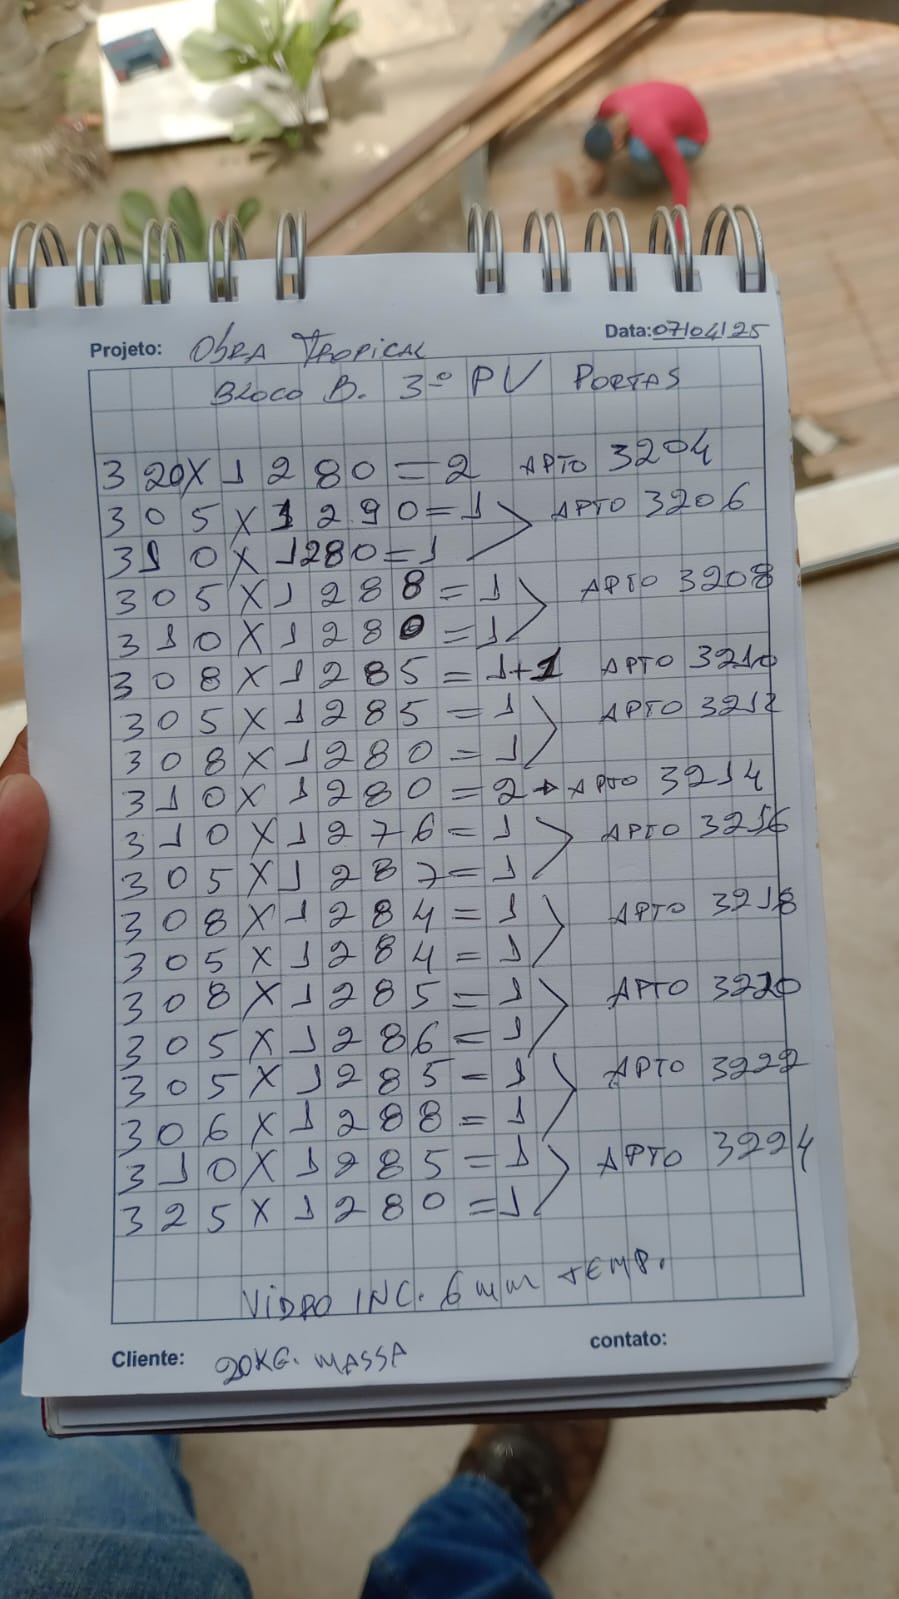 Projeto: Obra Tropical Data: 07/04/25
Bloco B. 3º PV Portas
320X1280=2 APTO 3204
305X1290=1 APTO 3206
310X1280=1
305X1288=1 APTO 3208
310X1280=1
308X1285=1+1 APTO 3210
305X1285=1 APTO 3212
308X1280=1
310X1280=2→APTO 3214
310X1276=1 APTO 3216
305X1287=1
308X1284=1 APTO 3218
305X1284=1
308X1285=1 APTO 3220
305X1286=1
305X1285=1 APTO 3222
306X1288=1
310X1285=1 APTO 3224
325X1280=1
VIDRO INC. 6mm TEMP.
Cliente: 20KG. MASSA contato: